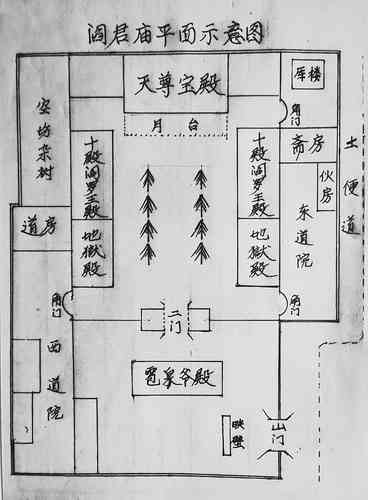 阎君庙平面示意图
天尊宝殿
月台
库楼
角门
空场杂树
十殿阎罗王殿
十殿阎罗王殿
斋房
伙房
土便道
道房
地狱殿
地狱殿
东道院
角门
二门
角门
西道院
鸳鸯爷殿
映壁
山门